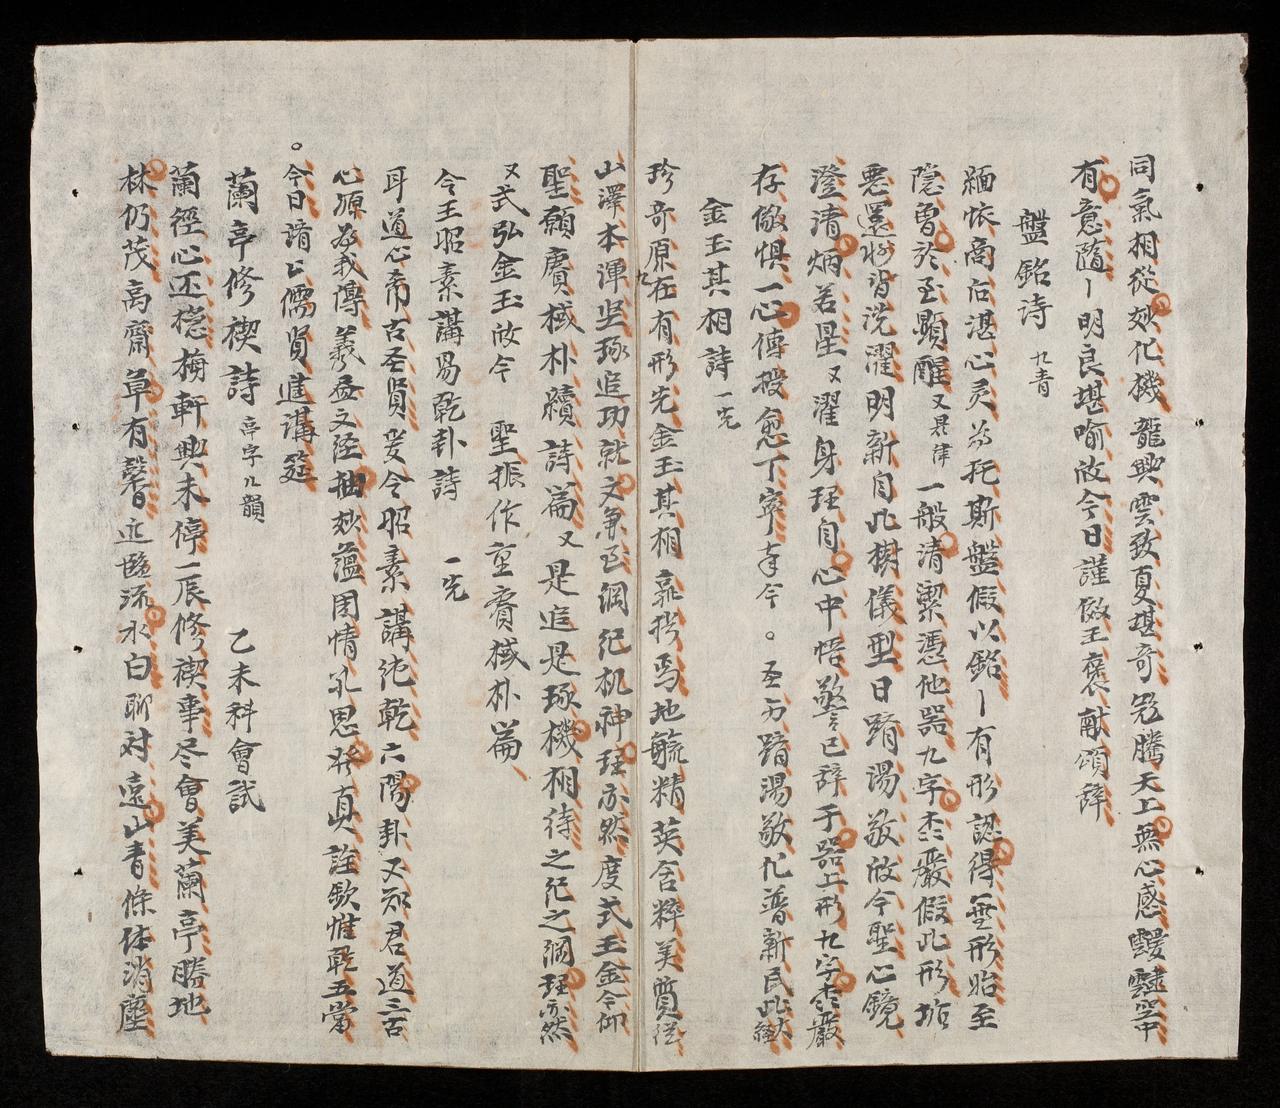 同氣相從妙化機龍興雲致夏堪奇宛騰天上無心感靉靆空中
有意隨〻明良堪喻攸今日謹倣王褒献頌辞
盤銘诗 九青
緬怀商后湛心灵為托斯盤假以銘〻有形認得無形貽至
隱曽於至顯醒又 一般清潔憑他器九字森嚴假此形垢
悪還將背洗濯明新自此樹儀型日躋湯敬攸今聖心鏡
澄清炳若星又濯身理自心中悟警已辞于器上形九字森嚴
存儆惧一心傳授愈丁寧 今。至万躋湯敬化普新民此
金玉其相詩 一先
珍奇原在有形先金玉其相 焉地毓精英含粹美質從
山澤本渾坚琢追功就文争至綱纪机神理亦然度式玉金今仰
聖願賡棫朴續詩篇又是追是琢機相待之纪之綱理亦然
又式弘金玉攸今 聖振作重賡棫朴篇
今王昭素講易乾卦詩 一先
耳道心希古圣賢爰今昭素講 乾六陽卦又知君道三古
心源為我傳羲 文经抽妙蘊周情孔思發真詮欽惟乾五當
。今日諳 儒賢進講筵
蘭亭修禊詩 亭字八韻 乙未科會試
蘭徑心 穏梅軒興未停一辰修禊事尽會美蘭亭勝地
林仍茂高齋草有馨 臨流水白聊对遠山青條体消塵